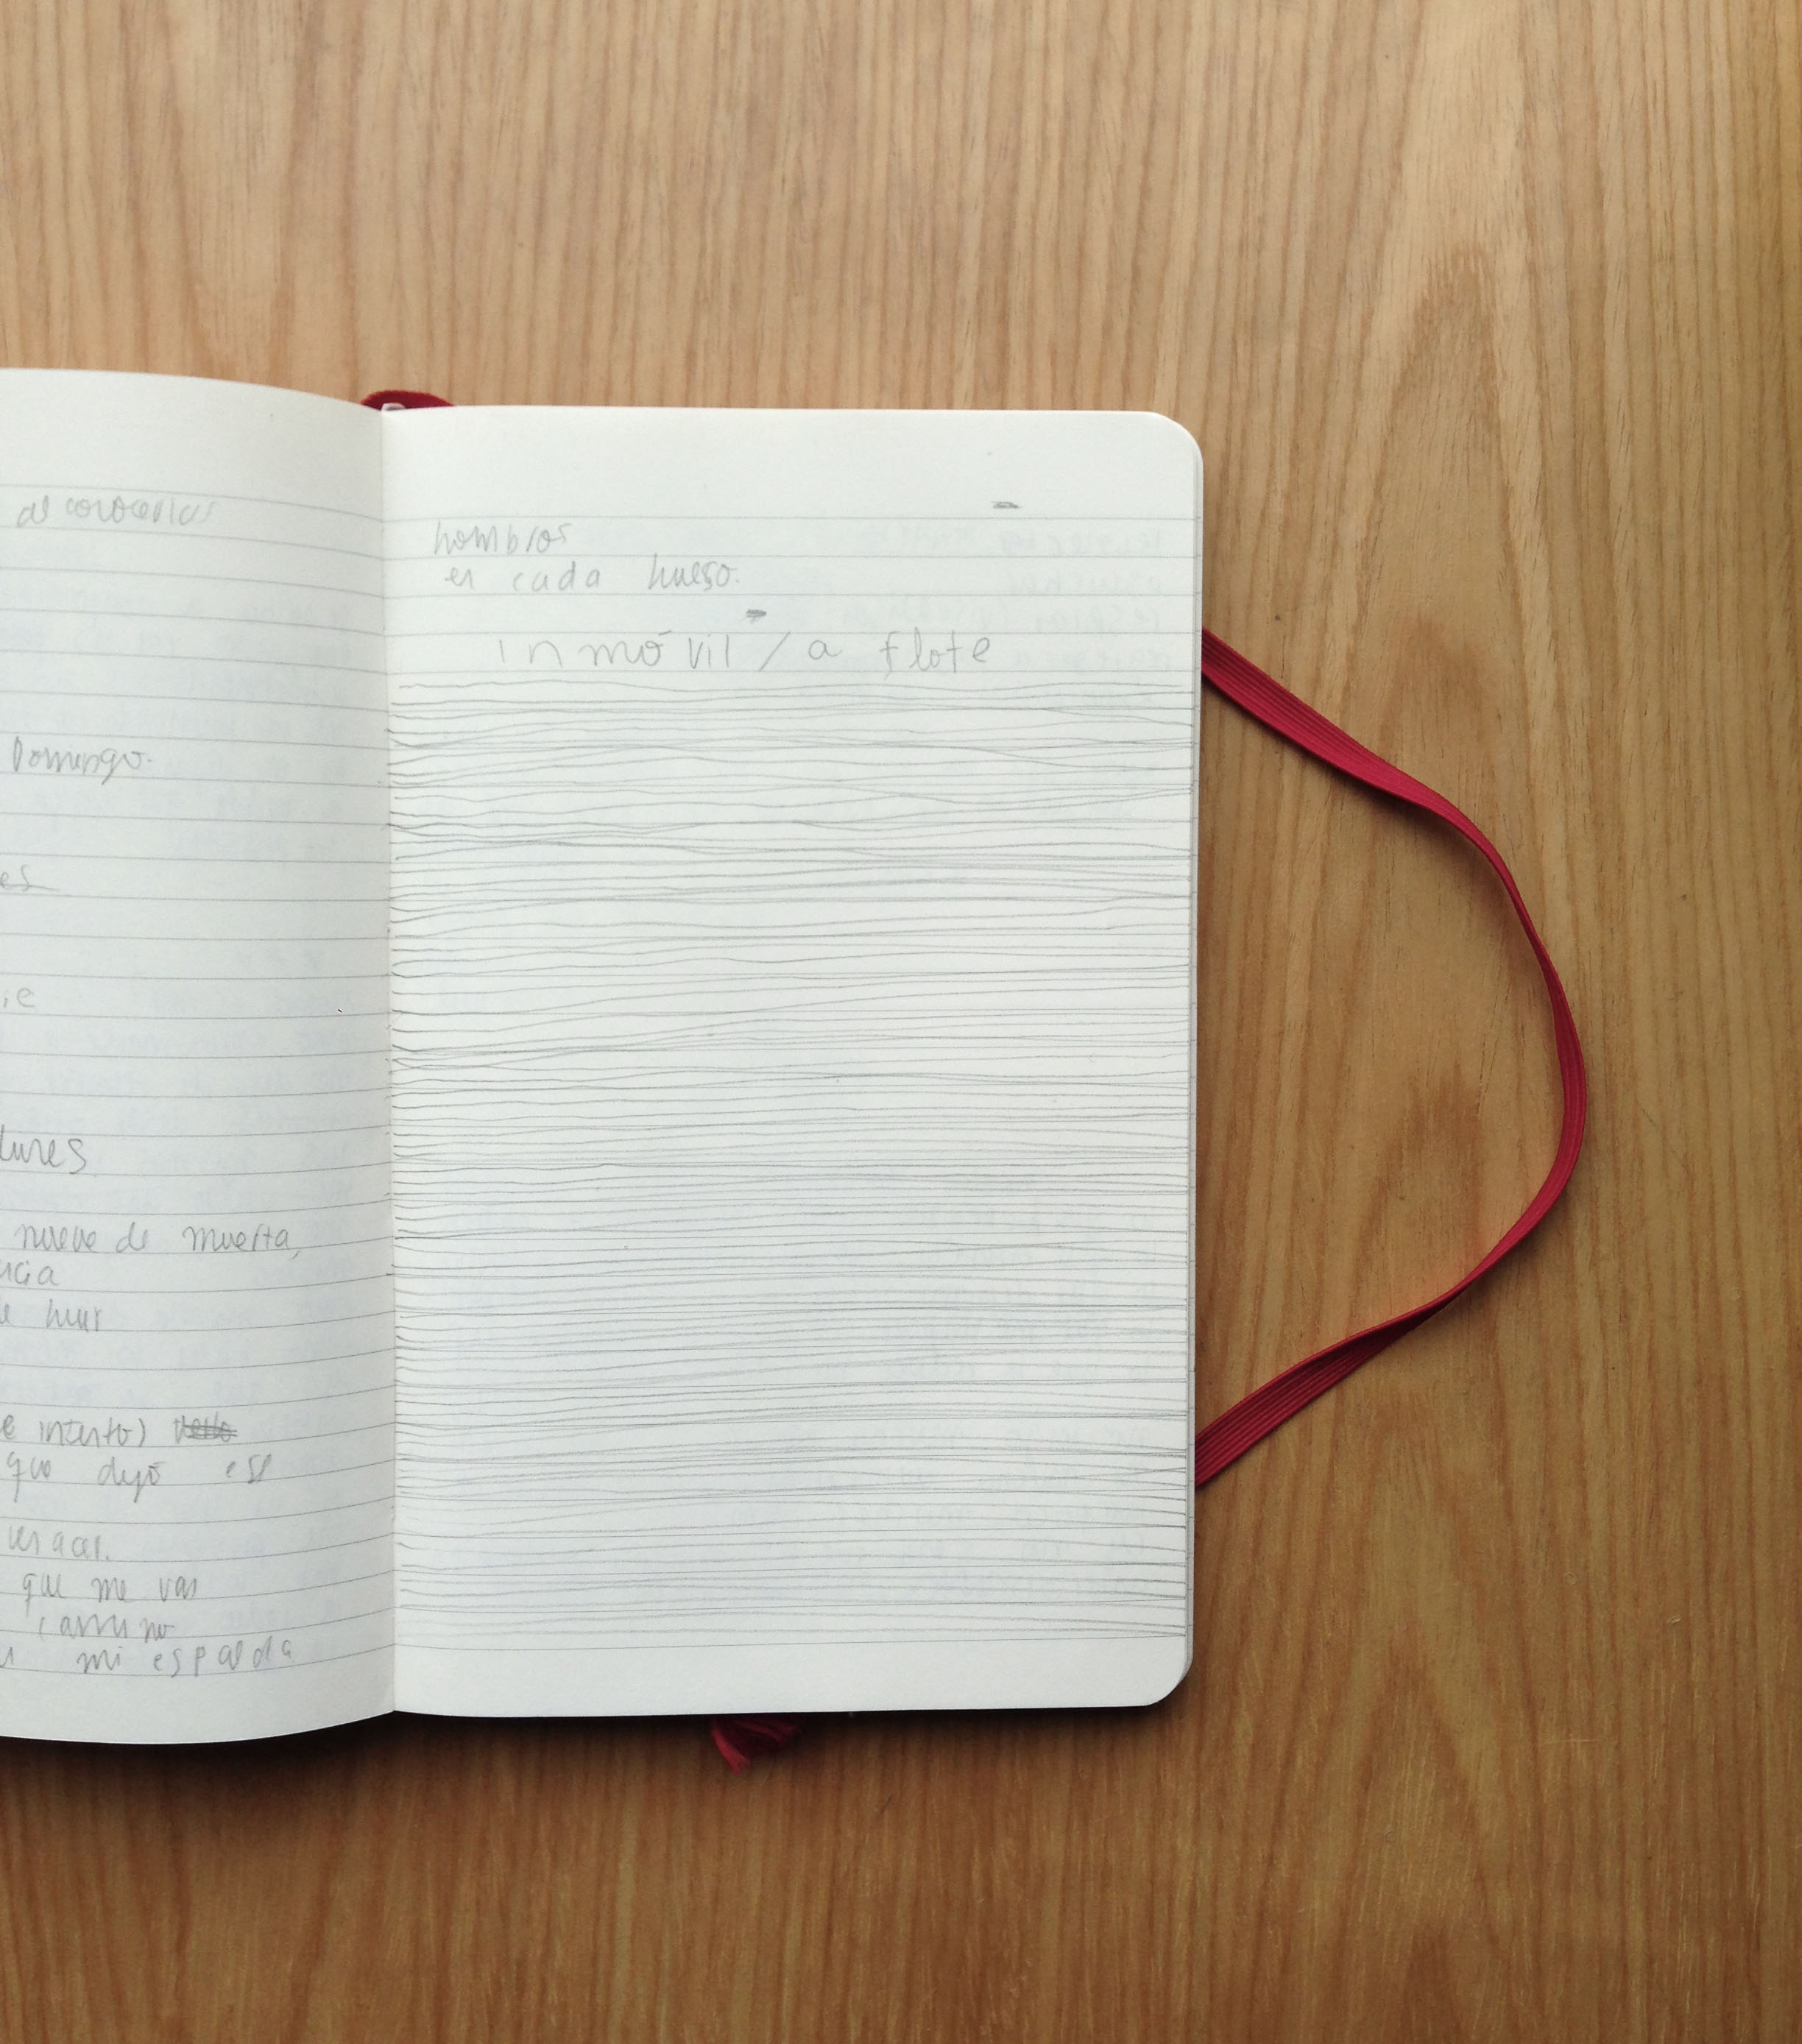 al conocerlos
Domingo.
es
ie
lunes
nueve de muerta,
ncia
de huir
e intento)
que dejó ese
que me vas
camino
mi espalda
hombros
en cada hueso.
inmóvil / a flote